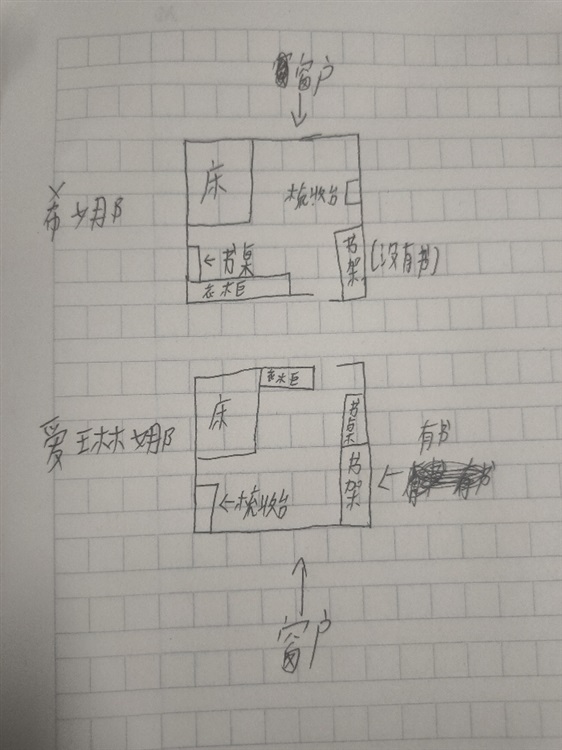 窗户
床
梳妆台
希娜
书架
(没有书)
←书桌
衣柜
衣柜
床
书桌
爱琳娜
有书
书架
←梳妆台
窗户